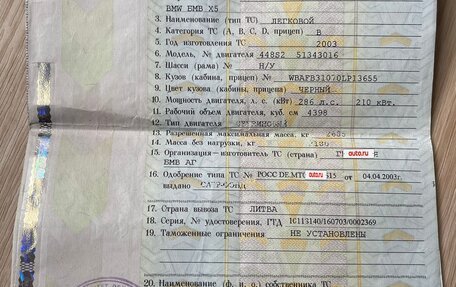 BMW БМВ X5
3. Наименование (тип ТС) ЛЕГКОВОЙ
4. Категория ТС (А, В, С, D, прицеп) В
5. Год изготовления ТС 2003
6. Модель, № двигателя 448S2 51343016
7. Шасси (рама) № Н/У
8. Кузов (кабина, прицеп) № WBAFB31070LP13655
9. Цвет кузова (кабины, прицепа) ЧЕРНЫЙ
10. Мощность двигателя, л. с. (кВт) 286 л.с. 210 кВт.
11. Рабочий объем двигателя, куб. см 4398
12. Тип двигателя
13. Разрешенная максимальная масса, кг
14. Масса без нагрузки, кг
15. Организация—изготовитель ТС (страна) auto.ru
БМВ АГ
16. Одобрение типа ТС № РОСС DE.МТ auto.ru 515 от 04.04.2003г.
выдано
17. Страна вывоза ТС ЛИТВА
18. Серия, № удостоверения, ГТД 10113140/160703/0002369
19. Таможенные ограничения НЕ УСТАНОВЛЕНЫ
20. Наименование (ф. и. о.) собственника ТС